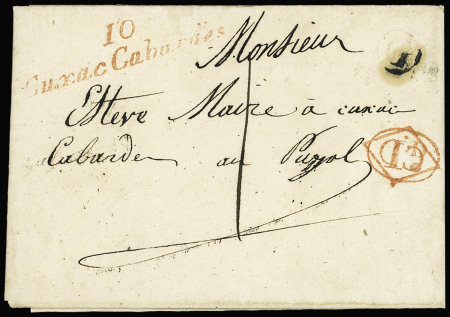 10
Cuxac Cabardès
Monsieur
Esteve Maire à cuxac
Cabardes au Pujol
1
CL